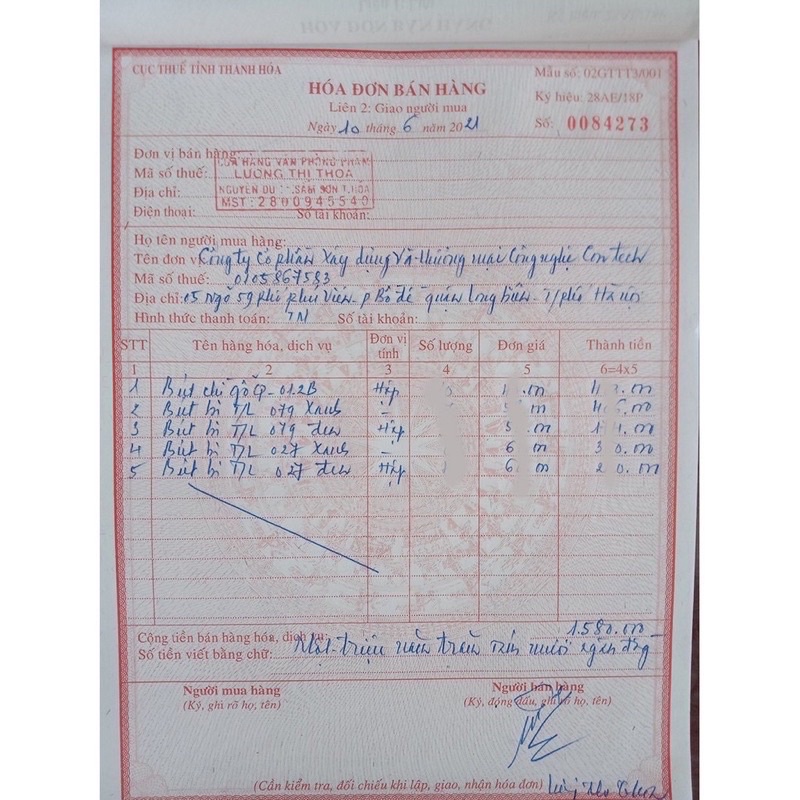 HÓA ĐƠN BÁN HÀNG
CỤC THUẾ TỈNH THANH HÓA
Mẫu số: 02GTTT3/001
HÓA ĐƠN BÁN HÀNG
Ký hiệu: 28AE/18P
Liên 2: Giao người mua
Số: 0084273
Ngày 10 tháng 6 năm 2021
Đơn vị bán hàng:
CỬA HÀNG VĂN PHÒNG PHẨM
Mã số thuế: LƯƠNG THỊ THOA
Địa chỉ: NGUYỄN DU SẦM SƠN T.HÓA
MST: 2800945540
Điện thoại: Số tài khoản:
Họ tên người mua hàng:
Tên đơn vị: Công ty Cổ phần Xây dựng Và thương mại Công nghệ Contech
Mã số thuế: 0105867583
Địa chỉ: 05 Ngõ 59 phố phú Viên - p Bồ đề quận Long biên - T/phố Hà Nội
Hình thức thanh toán: TM Số tài khoản:
STT Tên hàng hóa, dịch vụ Đơn vị tính Số lượng Đơn giá Thành tiền
1 2 3 4 5 6=4x5
1 Bút chì gỗ GP-012B Hộp
2 Bút bi T/L 079 Xanh -
3 Bút bi T/L 079 đen Hộp
4 Bút bi T/L 027 Xanh -
5 Bút bi T/L 027 đen Hộp
Cộng tiền bán hàng hóa, dịch vụ: 1.580.000
Số tiền viết bằng chữ: Một triệu năm trăm tám mươi ngàn đồng
Người mua hàng Người bán hàng
(Ký, ghi rõ họ, tên) (Ký, đóng dấu, ghi rõ họ, tên)
(Cần kiểm tra, đối chiếu khi lập, giao, nhận hóa đơn)